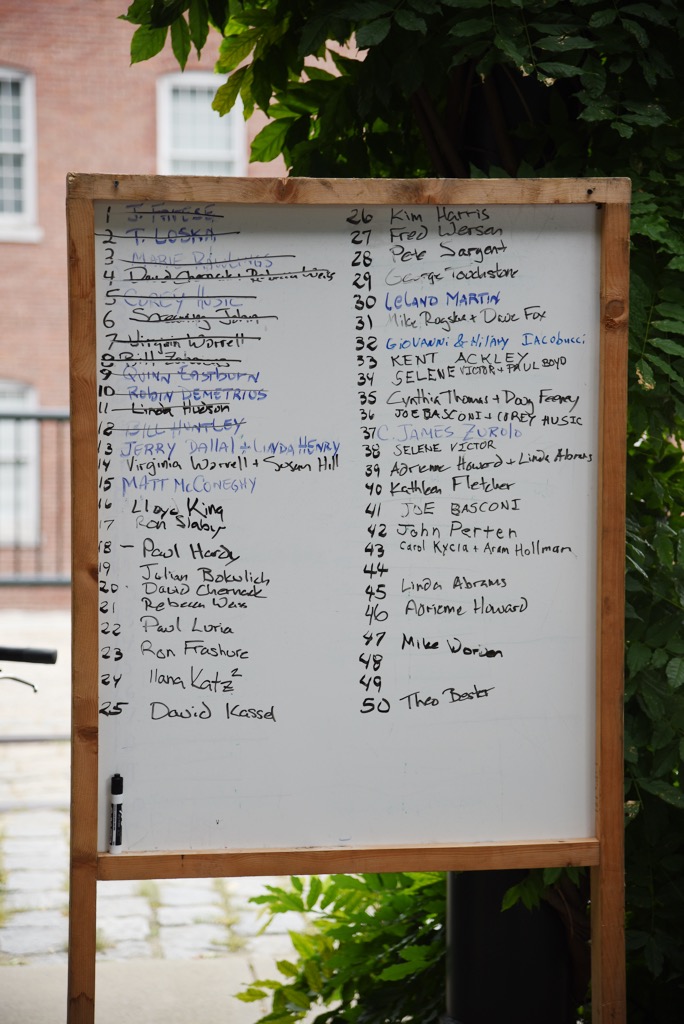 1 J. FARESE
2 T. LOSKA
3 MARIE RAWLINGS
4 David Chernack + Rebecca Weis
5 COREY MUSIC
6 Screaming John
7 Virginia Worrell
8 Bill
9 QUINN Eastburn
10 ROBIN DEMETRIUS
11 Linda Hudson
12 BILL HUNTLEY
13 JERRY DALLAL + LINDA HENRY
14 Virginia Worrell + Susan Hill
15 MATT McCONEGHY
16 Lloyd King
17 Ron Slaby
18 - Paul Hardy
19 Julian Bokulich
20 David Chernack
21 Rebecca Weis
22 Paul Luria
23 Ron Frashure
24 Ilana Katz 2
25 David Kassel
26 Kim Harris
27 Fred Wersen
28 Pete Sargent
29 George Touchstone
30 LELAND MARTIN
31 Mike Rogske + Dave Fox
32 GIOVANNI & Hilary IACobucci
33 KENT ACKLEY
34 SELENE VICTOR + PAUL BOYD
35 Cynthia Thomas + Doug Feeney
36 JOE BASCONI + COREY MUSIC
37 C. JAMES ZUROLO
38 SELENE VICTOR
39 Adrienne Howard + Linda Abrams
40 Kathleen Fletcher
41 JOE BASCONI
42 John Perten
43 Carol Kycia + Aram Hollman
44
45 Linda Abrams
46 Adrienne Howard
47 Mike
48
49
50 Theo Bester